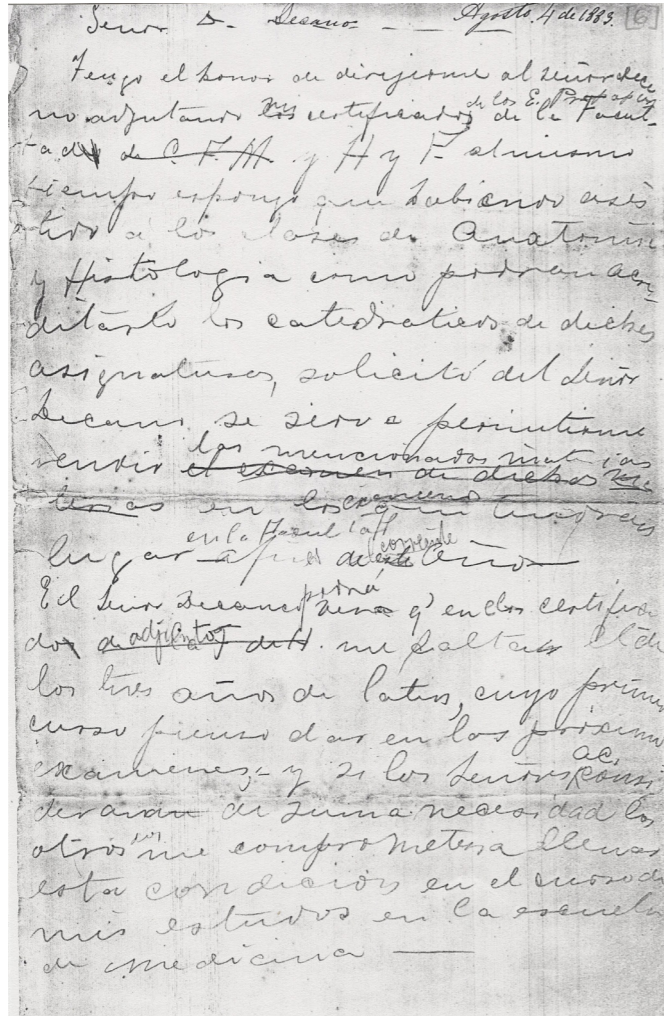 Señor D. Decano - - - Agosto 4 de 1883. 6
Tengo el honor de dirijirme al señor Deca
de los E. Preparat
no adjutando mis certificados de la Facul-
tad de C. F. M. y H y F. al mismo
tiempo espongo que habiendo asis
tido a los clases de Anatomia
y Histologia como podran acre-
ditárlo los catedraticos de dichas
asignaturas, solicitó del Señor
Decano se sirva permitirme
las mencionadas materias
rendir el examen de dichas ma
terias en los examenes que tendran
en la Facultad
lugar a fin del corriente este año
El Señor Decano podrá vera q' en los certifica
dos adjuntos de H. me faltan el de
los tres años de latin, cuyo primer
curso pienso dar en los próximos
examenes; - y si los Señores ac. consi
deraran de suma necesidad los
otros me comprometera llenar
esta condicion en el curso de
mis estudios en la escuela
de medicina —